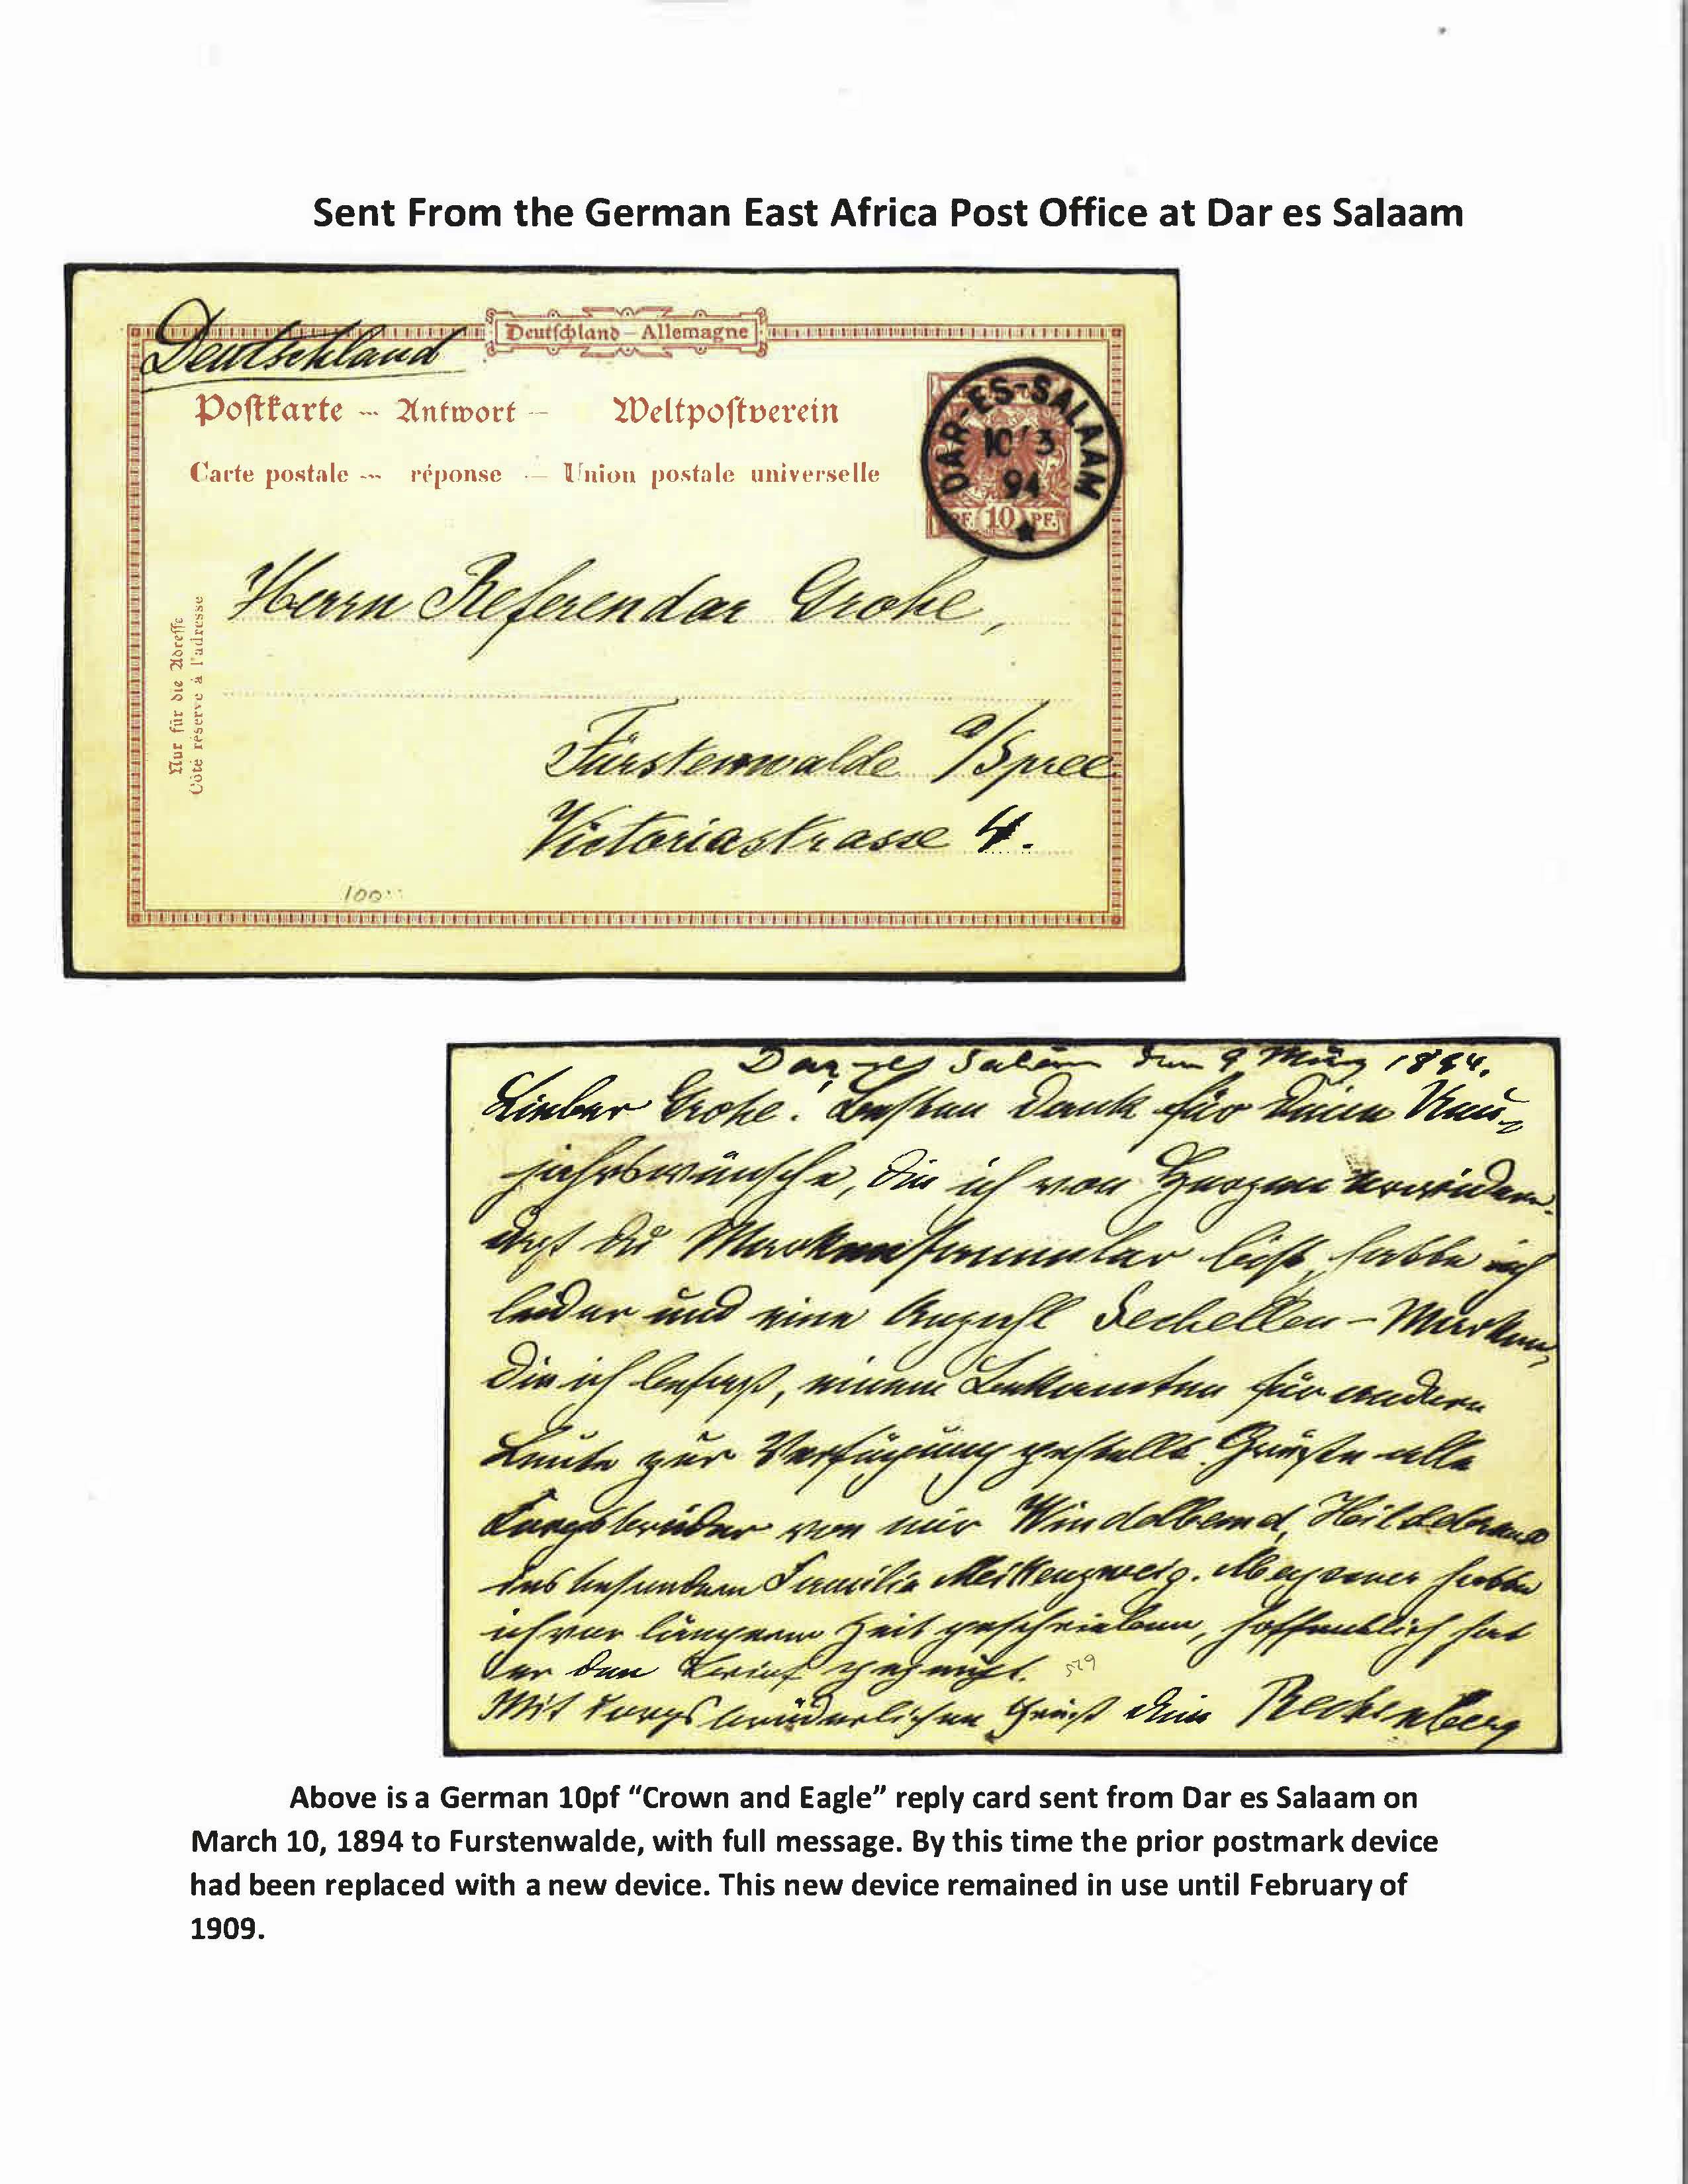 Sent From the German East Africa Post Office at Dar es Salaam
Deutschland
Deutschland – Allemagne
Postkarte — Antwort — Weltpostverein
Carte postale — réponse — Union postale universelle
DAR-ES-SALAAM
10/3
94
PF. 10 PF.
Herrn Referendar Grohe,
Nur für die Adresse
Côté réservé à l'adresse
Fürstenwalde a/Spree
Victoriastrasse 4.
100
Dar-es Salâm den 9 März 1894.
Lieber Grohe! Besten Dank für Deine Neu-
jahrswünsche, die ich von Herzen erwidere.
Du Markensammler bist, hatte ich
leider und eine Anzahl Sechellen-Marken,
die ich besaß, einem Bekannten für andere
Leute zur Verfügung gestellt. Grüße alle
Korpsbrüder von mir Windelband, Hildebrand
insbesondere Familie hatte
ich vor längerer Zeit geschrieben, hoffentlich hat
er den Brief gekriegt. 529
Mit korpsbrüderlichem Gruß Dein Rechenberg
Above is a German 10pf “Crown and Eagle” reply card sent from Dar es Salaam on
March 10, 1894 to Furstenwalde, with full message. By this time the prior postmark device
had been replaced with a new device. This new device remained in use until February of
1909.